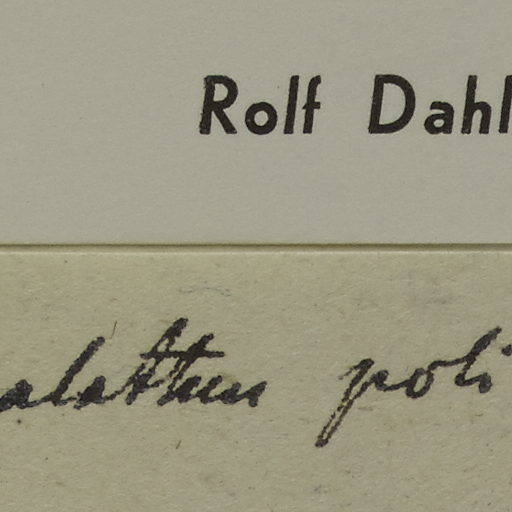 Rolf Dahl
alathus poli